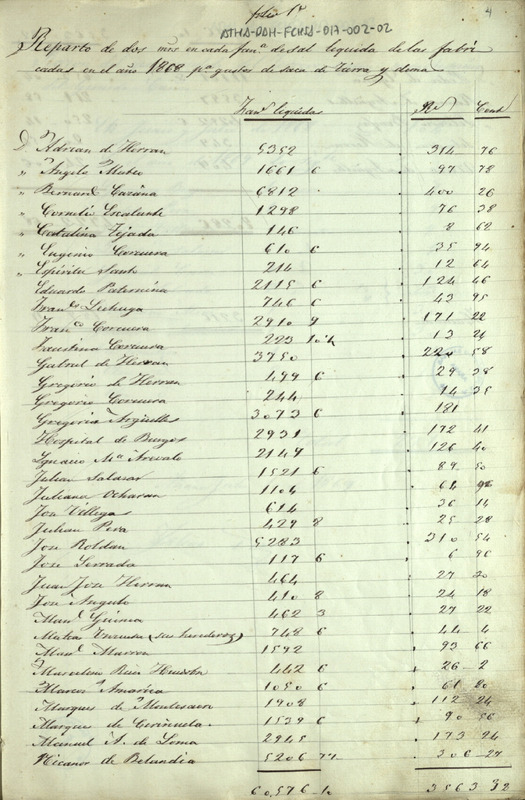 folio 1º
4
ATHA-DAH-FCHSA-017-002-02
Reparto de dos mrs en cada fanª de sal liquida de las fabri
cadas en el año 1868 pª gastos de saca de tierra y demas
Fans liquidas Rs Cents
D. Adrian de Herran 5352 314 76
" Angela Mateo 1661 6 97 78
" Bernardo 6812 400 26
" Cornelio Escalante 1298 76 38
" Catalina Tejada 146 8 62
" Eugenio Corcuera 610 6 35 94
" Espiritu Santo 214 12 64
Eduardo Paternina 2115 6 124 46
Franco Lechuga 746 6 43 95
Franco Corcuera 2910 9 171 22
Faustina Corcuera 223 10 ½ 13 24
Gabriel de Herran 3750 220 58
Gregorio de Herran 499 6 29 38
Gregorio Corcuera 244 14 35
Gregoria Argüelles 3073 6 181
Hospital de Burgos 2931 172 41
Ignacio Mª Arevalo 2149 126 40
Julian Salazar 1521 6 89 50
Juliana Ocharan 1104 64
Jose Villegas 614 36 14
Julian Pera 429 8 25 28
Jose Roldan 5283 310 54
Jose Serrada 117 6 6 90
Juan Jose Herran 464 27 30
Jose Angulo 410 8 24 18
Manl Guinea 462 3 27 22
Matias (sus herederos) 748 6 44 4
Manl Marron 1592 93 66
Marcelino Ruiz 442 6 26 2
Marcos Amarica 1050 6 61 80
Marques de Montesacro 1908 112 24
Marques de Ceriñuela 1539 6 90 56
Manuel A. de Loma 2945 173 24
Nicanor de Belandia 5206 306 27
60,576 10 3563 32